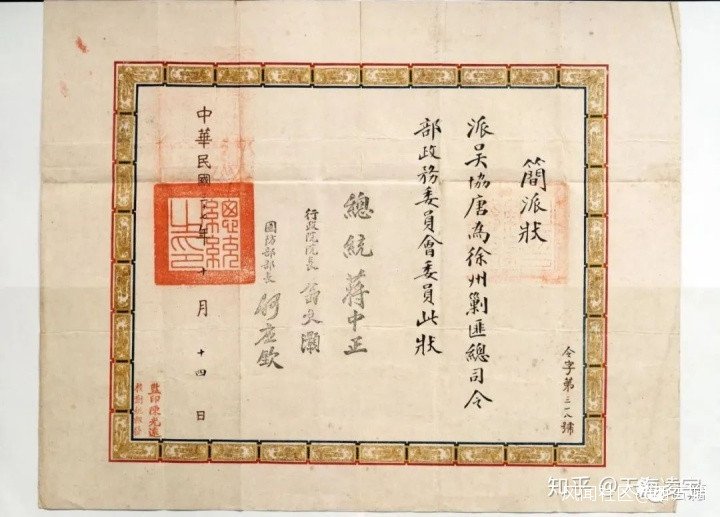 簡派狀
派吴協唐為徐州剿匪總司令
部政務委員會委員此狀
總統 蔣中正
行政院院長 翁文灝
國防部部長 何應欽
中華民國三十七年十月十四日
總統之印
監印陳光遠
令字第三一八號
知乎 @天海凌宇
风闻社区